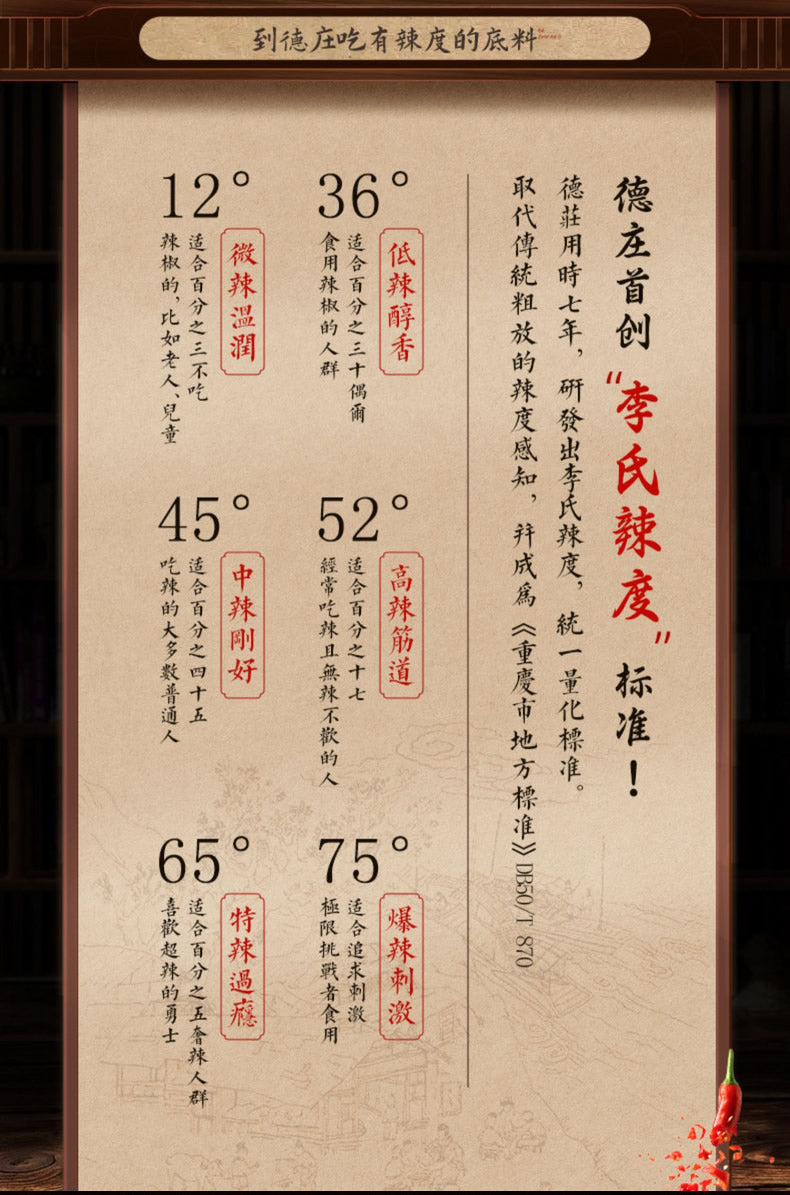 到德庄吃有辣度的底料
德庄首创
“李氏辣度”
标准！
德莊用時七年，研發出李氏辣度，統一量化標准。
取代傳統粗放的辣度感知，并成爲《重慶市地方標准》DB50/T 870
36°
低辣醇香
适合百分之三十偶爾
食用辣椒的人群
12°
微辣溫潤
适合百分之三不吃
辣椒的，比如老人、兒童
52°
高辣筋道
适合百分之十七
經常吃辣且無辣不歡的人
45°
中辣剛好
适合百分之四十五
吃辣的大多數普通人
75°
爆辣刺激
适合追求刺激
極限挑戰者食用
65°
特辣過癮
适合百分之五奢辣人群
喜歡超辣的勇士